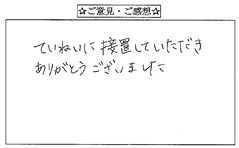 ☆ご意見・ご感想☆
ていねいに接置していただき
ありがとうございました